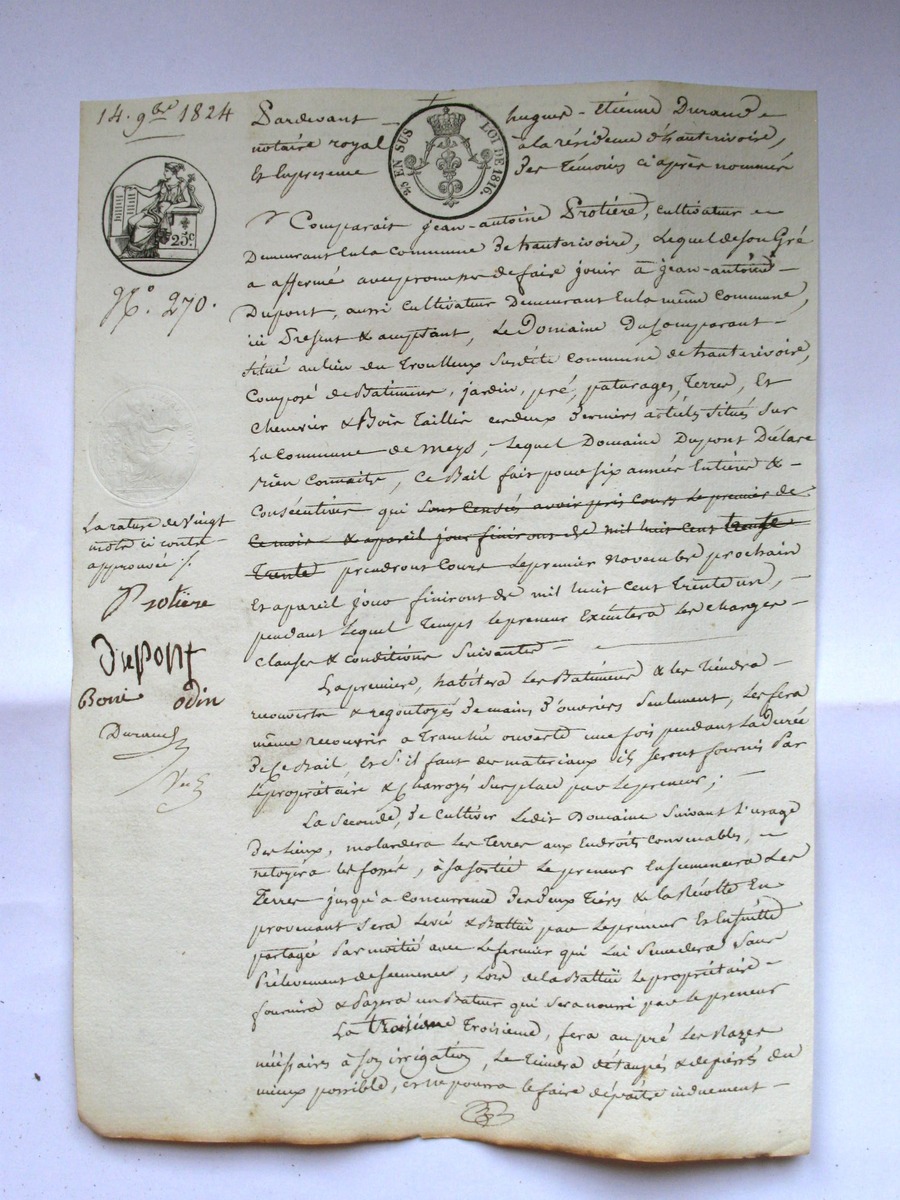 14. 9bre 1824
Pardevant hugues-étienne Durand
notaire royal à la résidence d'hauterivoire,
Et en présence des témoins ci après nommés
EN SUS LOI DE 1816.
25c
N°. 270.
Comparait jean-antoine Protière, cultivateur
Demeurant En la Commune de hauterivoire, Lequel de son Gré
a affermé avec promesse de faire jouir à jean-antoine
Dupont, aussi Cultivateur Demeurant En la même Commune,
ici Présent & acceptant, Le Domaine du Comparant
situé au lieu du Trouilleux Susdite Commune de hauterivoire,
Composé de Batimens, jardin, pré, paturages, Terres, Et
Chenevier & Bois Taillis ces deux derniers articles situés sur
La Commune de Meys, Lequel Domaine Dupont Déclare
bien Connaitre, Ce Bail fait pour six années Entières &
Consécutives qui Sont Censés avoir pris Cours Le premier de
Ce mois & apareil jour finiront de mil huit Cent trente
Trente prendront Cours Le premier Novembre prochain
Et apareil jour finiront de mil huit Cent Trente un,
pendant Lequel Temps Le preneur Exécutera Les Charges
Clauses & Conditions Suivantes
La rature de Vingt
mots ci contre
approuvée ./.
Protière
Dupont
odin
Durand
La premiere, habitera Les Batimens & les tiendra
recouverts & regoutoyés de mains d'ouvriers Seulement, Les fera
même recouvrir a Tranchée ouverte une fois pendant La Durée
de Ce Bail Et S'il faut des materiaux ils seront fournis Par
Le propriétaire & Charroyés Sur place par Le preneur;
La Seconde, de Cultiver Le dit Domaine Suivant L'usage
Des Lieux, molardera Les Terres aux Endroits Convenables,
netoyera les fossés, à sa sortie Le preneur Ensemencera Les
Terres jusqu'a Concurrence des deux Tiers & la Récolte En
provenant Sera Levée & Battue par Le preneur Et Ensuitte
partagée Par moitié avec Le fermier qui Lui Succedera Sans
Prélevement de Semences, Lors de la Battue Le propriétaire
fournira & Payera un Bateur qui Sera nourri par Le preneur
La troisieme Troisieme, fera au pré Les Razes
nécessaires à son irrigation, Le tiendra détaupés & dépierrés du
mieux possible, et ne pourra le faire dépaitre induement